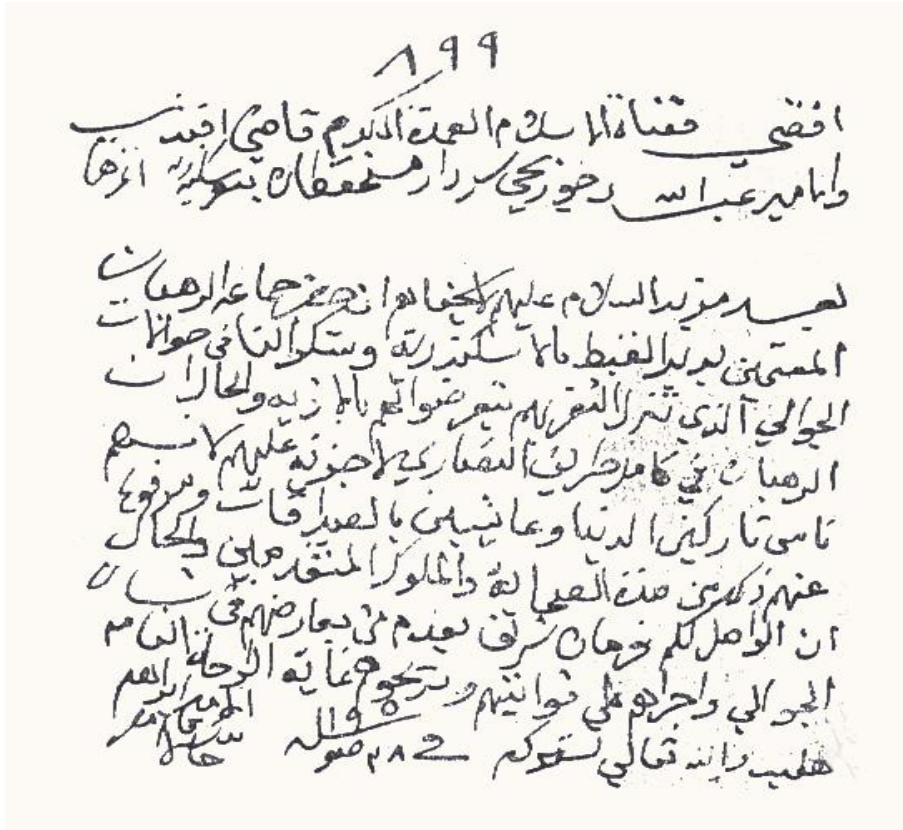 ٨٩٩
اقضى قضاة الاسلام العمدة المكرم قاضي افندي
والامير عبد الله سردار مستحفظان
بعد مزيد السلام عليهم لا يخفاهم ان حضر جماعة الرهبان
المقيمين بدير القبط بالاسكندرية وشكوا لنا في حوالات
الجوالي الذي تنزل الثغر بهم يتعرضوا لهم بالاذيه والحال ان
الرهبان في كامل طريق النصارى لا جزيه عليهم لانهم
ناس تاركين الدنيا وعايشين بالصدقات ومرفوع
عنهم ذلك من مدة الصحابة والملوك المتقدمين والحال
ان الواصل لكم فرمان شريف بعدم من يعارضهم في شان
الجوالي واجراهم على قوانينهم
والله تعالى في ٢٨